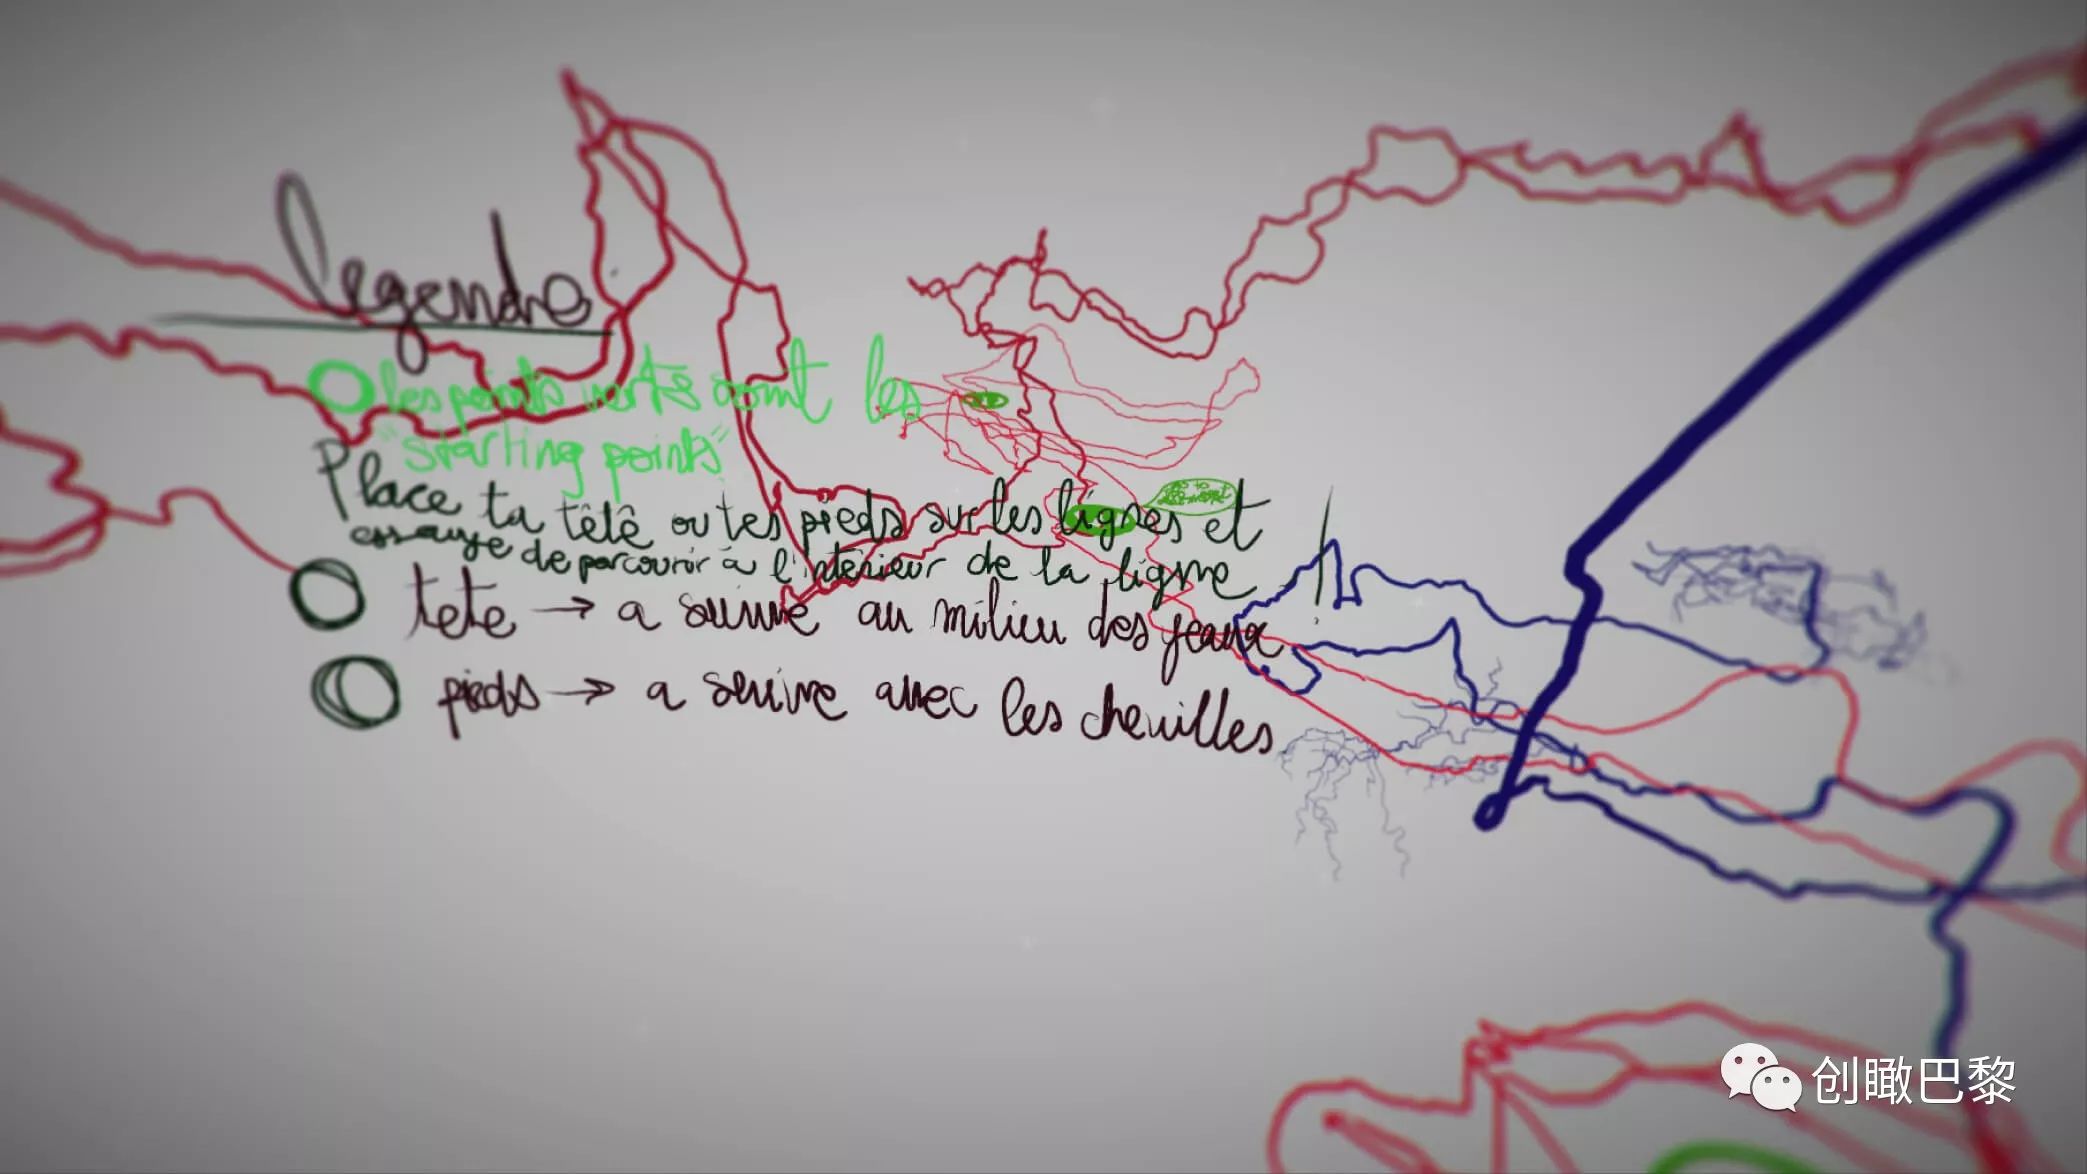 legende
les points verts sont les
"starting points"
Place ta tête ou tes pieds sur les lignes et
essaye de parcourir à l'intérieur de la ligne
tete → a suivre au milieu des yeaux
pieds → a suivre avec les chevilles
创瞰巴黎